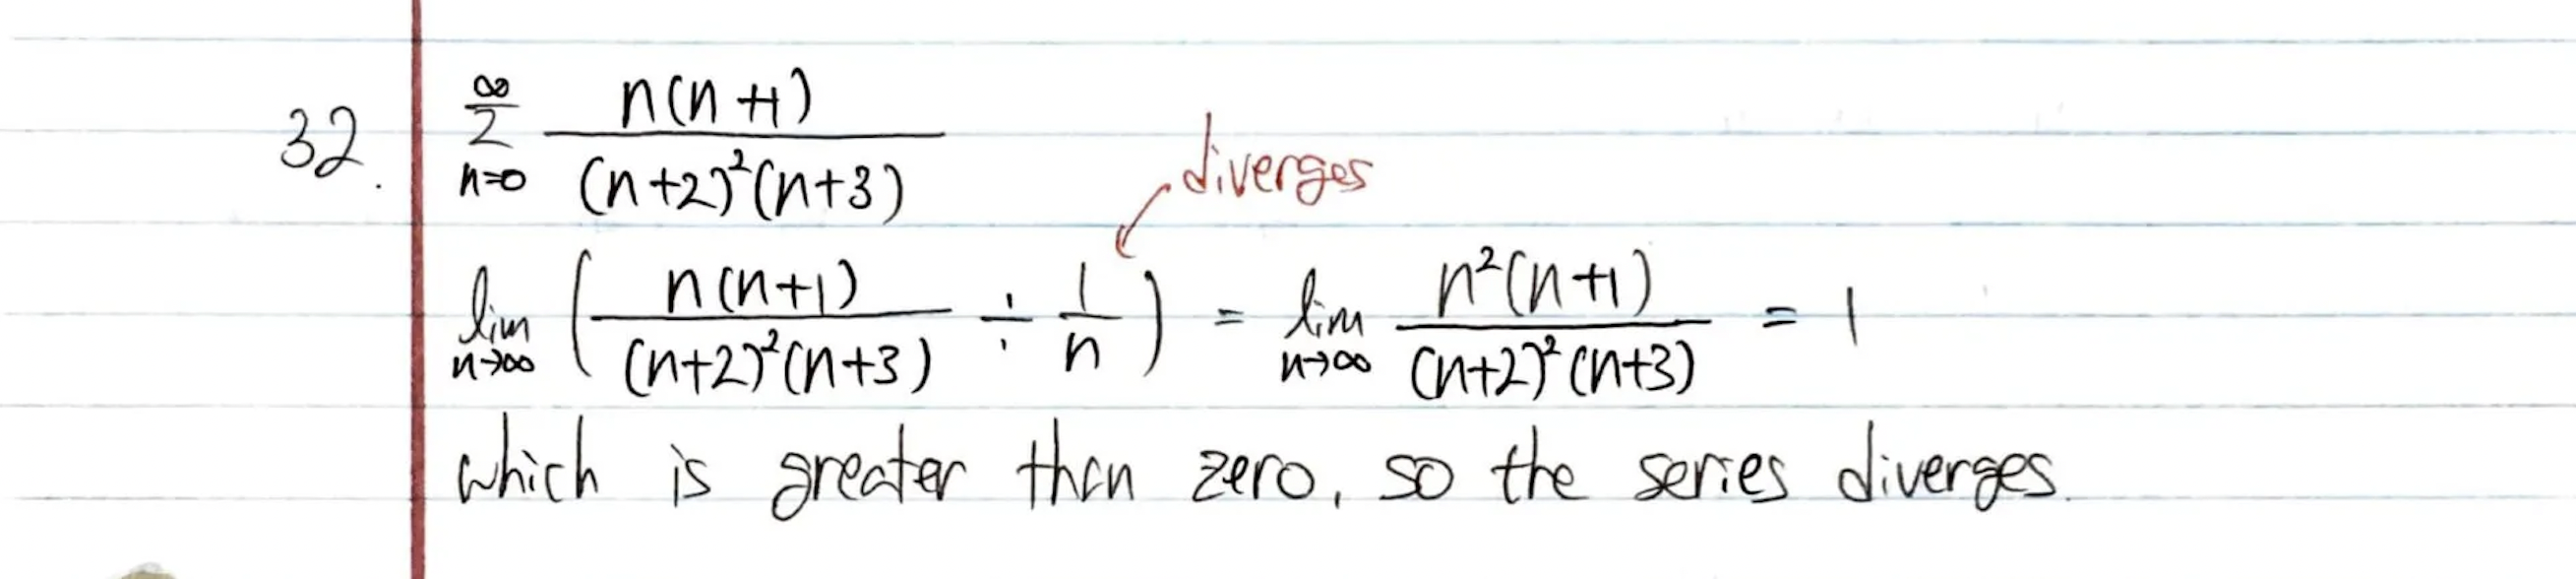 32. ∞ Σ n=0 n(n+1) / (n+2)²(n+3)
diverges
lim n→∞ ( n(n+1) / (n+2)²(n+3) ÷ 1/n ) = lim n→∞ n²(n+1) / (n+2)²(n+3) = 1
which is greater than zero, so the series diverges.